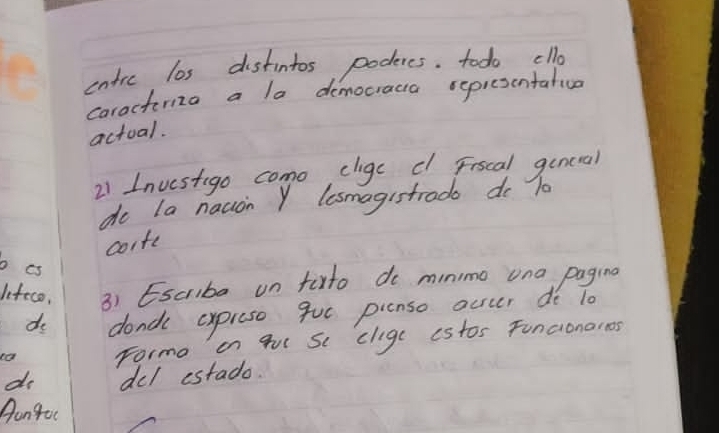 entre los distintos poderes. todo ello
caracteriza a la democracia representativa
actual.
2) Investigo como elige el Fiscal general
de la nación y losmagistrado de la
corte
3) Escribo un texto de minimo una pagina
donde expreso que pienso acerer de lo
Forma en que se elige estos Funcionarios
del estado.
o es
de
de
Aunque